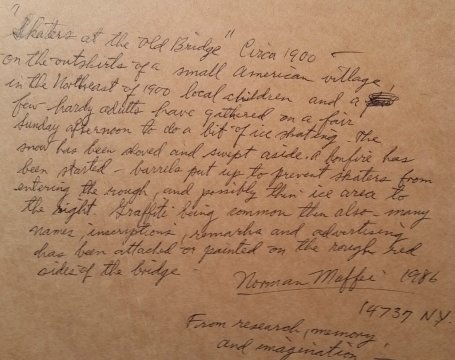 "Skaters at the Old Bridge" Circa 1900 —
on the outskirts of a small American village,
in the Northeast of 1900 local children and a
few hardy adults have gathered on a fair
Sunday afternoon to do a bit of ice skating. The
snow has been shoved and swept aside. a bonfire has
been started – barrels put up to prevent skaters from
entering the rough, and possibly thin ice area to
the right. Graffiti being common then also – many
names, inscriptions, remarks and advertising
has been attached or painted on the rough red
sides of the bridge.
Norman Maffei 1986
14737 N.Y.
From research, memory,
and imagination